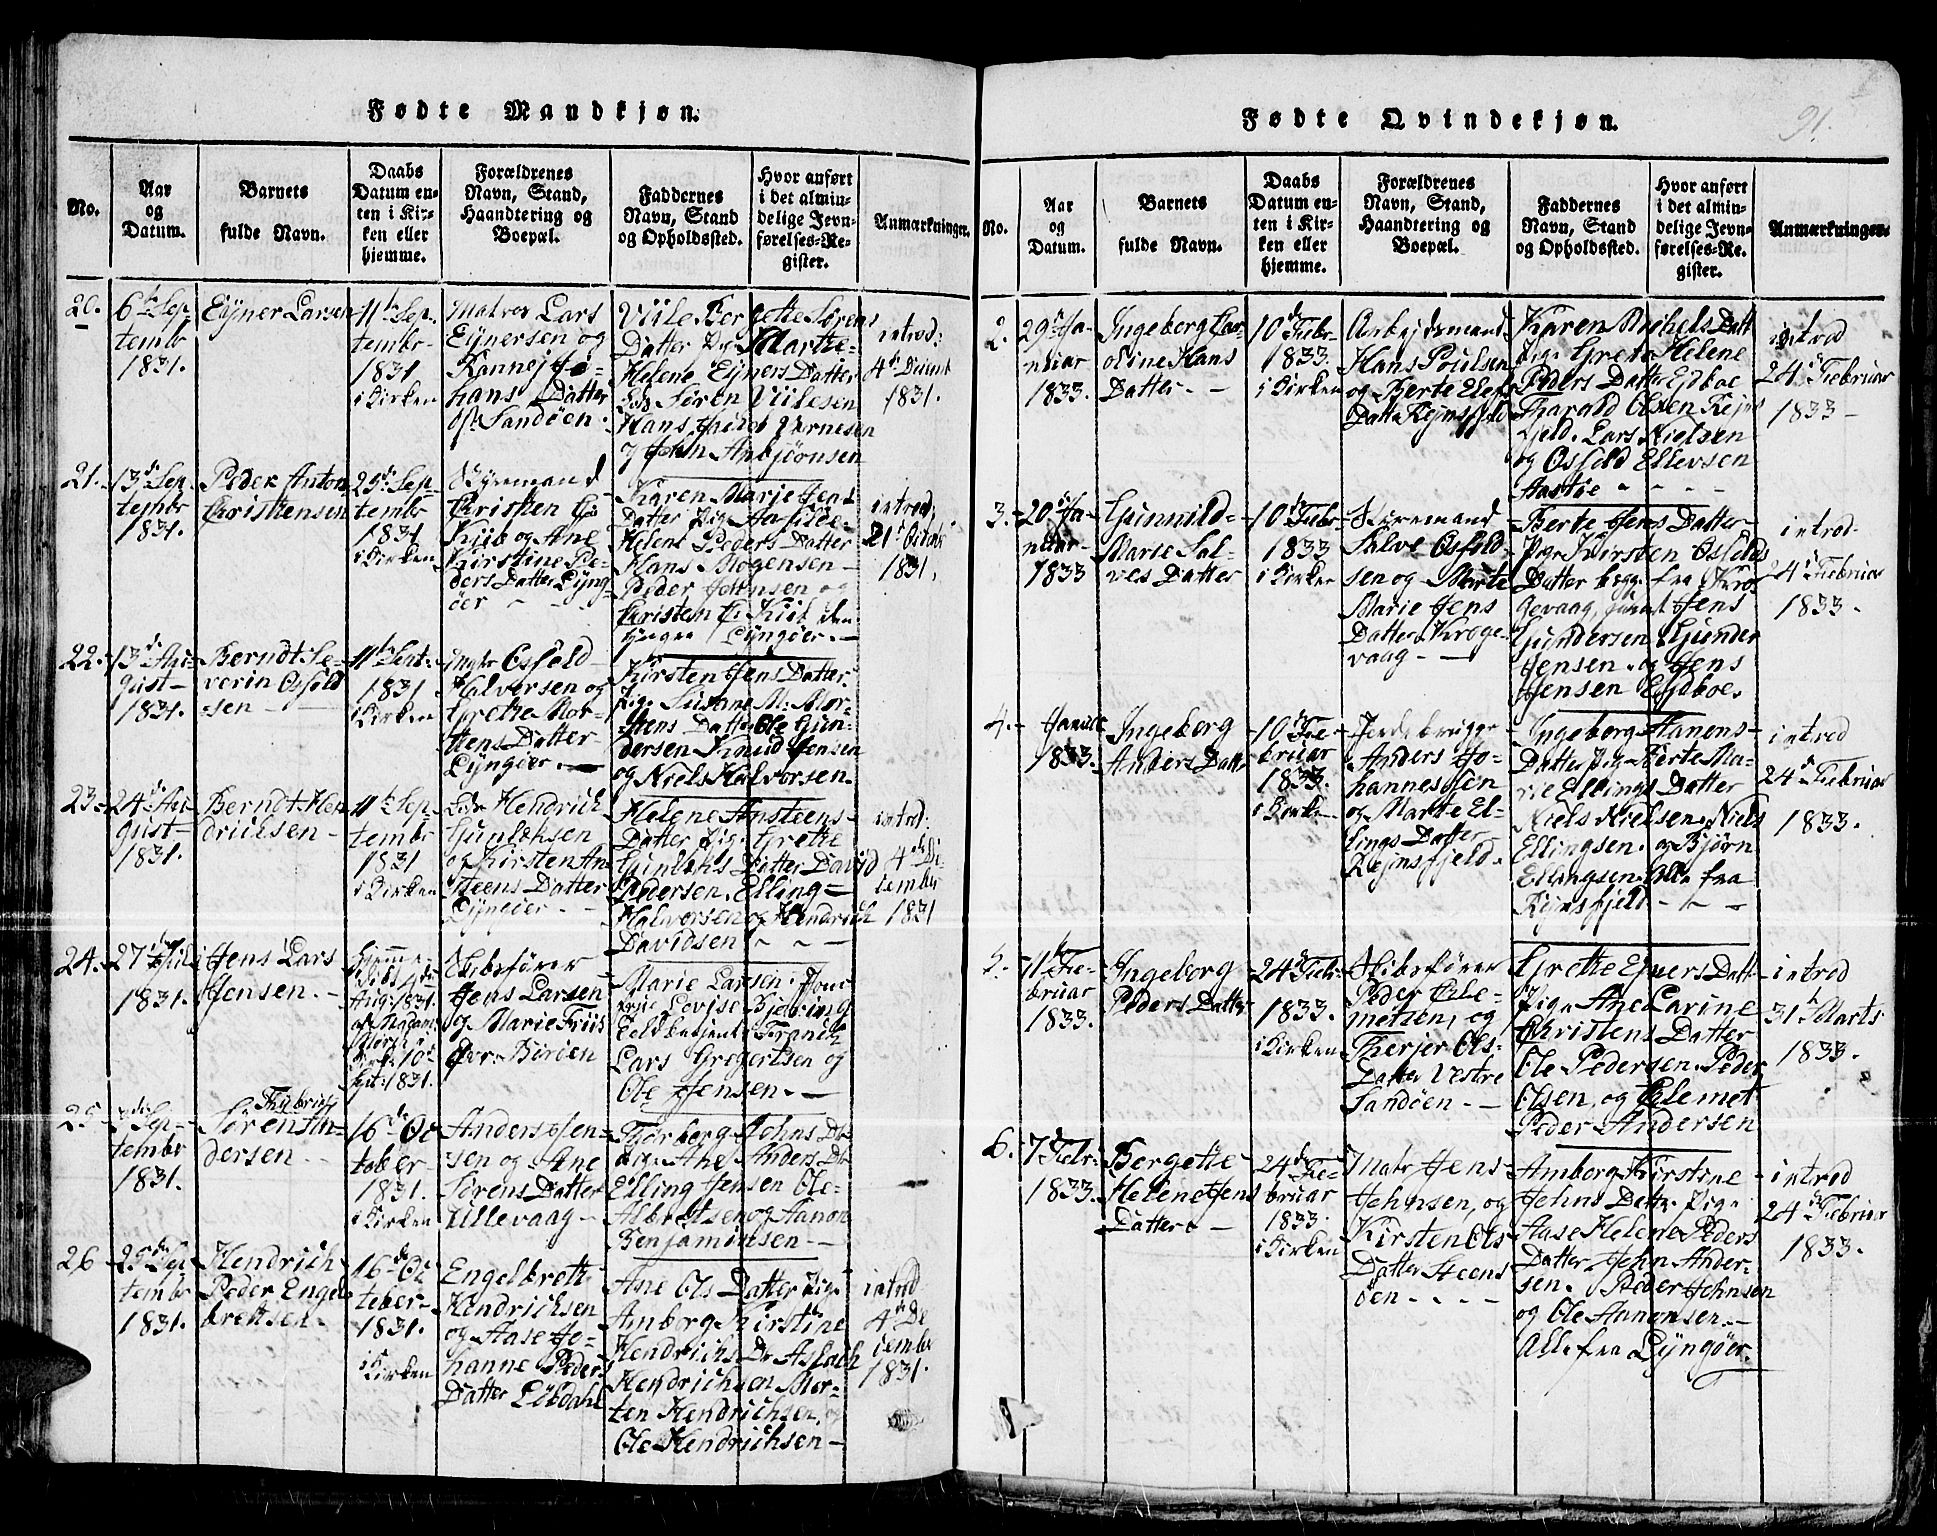 Fødte Mandkjøn.
No.
Aar
og
Datum.
Barnets
fulde Navn.
Daabs
Datum en-
ten i Kir-
ken eller
hjemme.
Forældrenes
Navn, Stand,
Haandtering og
Boepæl.
Faddernes
Navn, Stand
og Opholdssted.
Hvor anført
i det almin-
delige Jevn-
førelses-Re-
gister.
Anmærkninger.
20.
6te Sep-
tembr
1831.
Ejner Larsen
11te Sep-
tembr
1831
i Kirken
Matros Lars
Ejnersen og
Hans Datter
Sandøen.
Datter Pige Marthe
Helene Ejners Datter
Søren Viilesen
introd:
4de
1831.
21.
13de Sep-
tembr
1831.
Peder Anton
Christensen
25de Sep-
tembr
1831
i Kirken
Styrmand
Christen C:
Kiib og Ane
Kirstine Pe-
ders Datter Lyng-
öer
Karen Marie Jens
Datter Pige
Helene Peders Datter
Hans Mogensen
Peder Johnsen og
Christen C. Kiib den
yngre / Lyngöer.
introd:
21de Octobr
1831.
22.
13de Au-
gust
1831.
Berndt Se-
verin Osfeld
sen
11te Sept:
1831
i Kirken
Osfeld
Halvorsen og
Grethe Mor-
tens Datter
Lyngöer.
Kirsten Jens Datter.
Pige Susane M. Mor-
tens Datter Ole Gun-
dersen Knud Jensen
og Niels Halvorsen.
23.
24de Au-
gust
1831.
Berndt Hen
drichsen
11te Sep-
tembr
1831
i Kirken
Hendrich
Gunlaksen
og Kirsten An-
steens Datter
Lyngöer
Helene Ansteens
Datter Pige Grethe
Gunlaks Datter David
Pedersen Elling
Halvorsen og Hendrich
Davidsen
introd:
4de De-
cember
1831
24.
27de Juli
1831.
Jens Lars
Jensen.
Hjemme-
döbt
Aug: 1831.
af Madam
10de
Spt: 1831.
Skibsförer
Jens Larsen
og Marie Friis
Marie Larsen
Lovise Bjebring
Toldbetjent
Lars Gregertsen og
Ole Jensen.
25
3de Sep-
tembr
1831.
Thybring
Sören An-
dersen
16de Oc
tober
1831.
i Kirken
Anders Jen-
sen og Ane
Sörens Datter
Lillevaag
Thorberg Johns Dr
Pige Ane Anders Dr
Elling Jensen Ole
Albretsen og Aanon
Benjaminsen
26
25de Sep
tembr
1831.
Hendrich
Peder Engel
brethsen.
16de Oc
tober
1831.
i Kirken
Engelbreth
Hendrichsen
og Aase Jo-
hanne Peders
Datter Lökdahl
Ane Ols Datter Pige
Amborg Kirstine
Hendrichs Dr Aslach
Hendrichsen Mor-
ten Hendrichsen og
Ole Hendrichsen
introd
4de De
cember
1831.
Fødte Qvindekjøn.
91.
No.
Aar
og
Datum.
Barnets
fulde Navn.
Daabs
Datum en-
ten i Kir-
ken eller
hjemme.
Forældrenes
Navn, Stand,
Haandtering og
Boepæl.
Faddernes
Navn, Stand
og Opholdssted.
Hvor anført
i det almin-
delige Jevn-
førelses-Re-
gister.
Anmærkninger.
2.
29de Ja-
nuar
1833.
Ingeborg Car
oline Hans
Datter
10de Febr
1833.
i Kirken
Arbejdsmand
Hans Poulsen
og Berte Elefs
Datter Rejmsfjeld
Karen Michels Datt
Pige Grete Helene
Peders Datter Ejdboe
Tharald Olsen Rejms
fjeld. Lars Nielsen
og Osfeld Ellevsen
Aastöe
introd
24de Februar
1833
3.
20de Ja-
nuar
1833
Gunnild
Marie Sal-
ves Datter
10de Febr
1833
i Kirken
Styrmand
Salve Osfeld-
sen og Marte
Marie Jens
Datter Kroge-
vaag
Berte Jens Datter
Pige Kirsten Osfelds
Datter begge fra Kro
gevaag, Jens
Gundersen Gunder
Jensen og Jens
Jensen Ejdboe.
introd
24de Februar
1833.
4.
Januar
1833.
Ingeborg
Anders Datter
10de Fe-
bruar
1833.
i Kirken
Jordebruger
Anders Jo-
hannessen
og Marte El-
lings Datter
Rejmsfjeld.
Ingeborg Hanens
Datter Pige Berte Ma-
rie Ellings Datter
Niels Nielsen. Niels
Ellingsen. og Bjørn
Ellingsen. Alle fra
Rejmsfjeld
introd
24de Februar
1833.
5.
11te Fe-
bruar
1833.
Ingeborg
Peders Datter
24de Febr
1833.
i Kirken
Skibsförer
Peder Cle-
metsen, og
Therjer Ols
Datter Vestre
Sandöen
Grethe Ejners Datt
Pige Ane Carine
Christens Datter
Ole Pedersen. Peder
Olsen, og Clemet
Peder Andersen
introd
31te Marts
1833.
6.
7de Febr
1833.
Bergette
Helene Jens
Datter
24de Fe-
bruar
1833.
i Kirken
Matr Jens
Johnsen, og
Kirsten Ols
Datter Steens
öen
Amborg Kirstine
Johns Datter Pige
Aase Helene Peders
Datter John Ander-
sen. Peder Johnsen
og Ole Aanonsen.
Alle fra Lyngöer.
introd
24de Februar
1833.